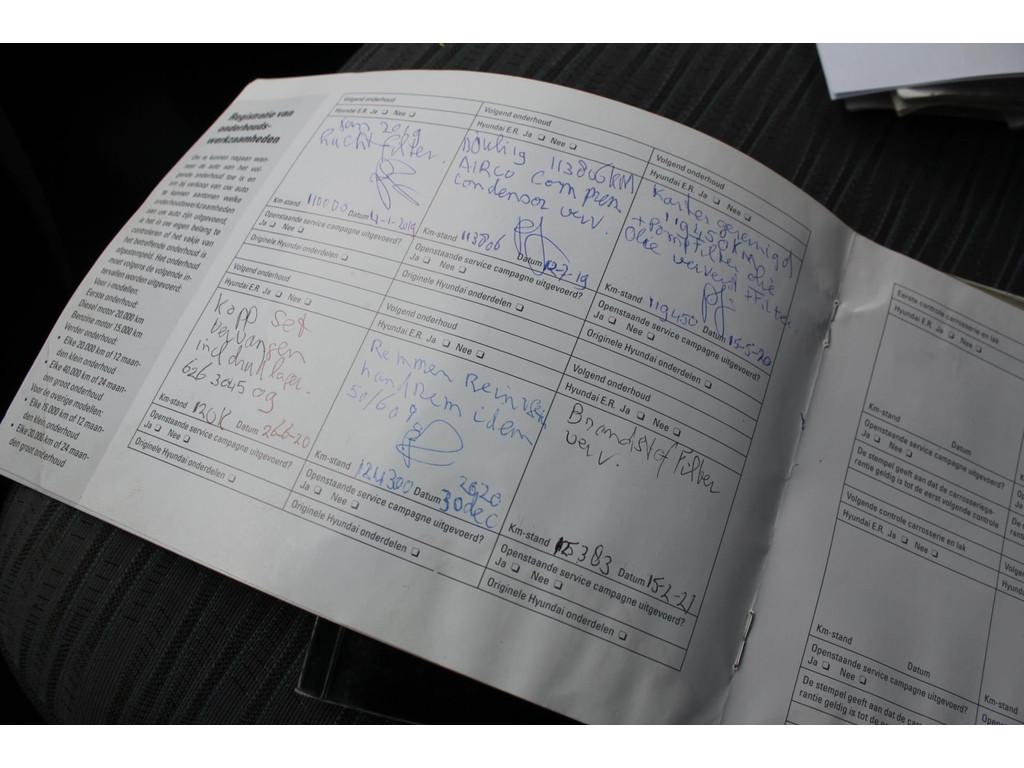 Registratie van
onderhouds-
werkzaamheden
Om te kunnen nagaan wan-
neer de auto aan het vol-
gende onderhoud toe is en
om bij verkoop van uw auto
te kunnen aantonen welke
onderhoudswerkzaamheden
aan uw auto zijn uitgevoerd,
is het in uw eigen belang te
controleren of het vakje van
het betreffende onderhoud is
afgestempeld. Het onderhoud
moet volgens de volgende in-
tervallen worden uitgevoerd:
Voor i-modellen:
Eerste onderhoud:
Diesel motor 20.000 km
Benzine motor 15.000 km
Verder onderhoud:
• Elke 20.000 km of 12 maan-
den klein onderhoud
• Elke 40.000 km of 24 maan-
den groot onderhoud
Voor ix overige modellen:
• Elke 15.000 km of 12 maan-
den klein onderhoud
• Elke 30.000 km of 24 maan-
den groot onderhoud
Volgend onderhoud
Hyundai E.R. Ja ❏ Nee ❏
Jan 2019
Luchtfilter.
Km-stand 110000 Datum 4-1-2019
Openstaande service campagne uitgevoerd?
Ja ❏ Nee ❏
Originele Hyundai onderdelen ❏
Volgend onderhoud
Hyundai E.R. Ja ❏ Nee ❏
113806 KM
AIRCO Compres
condensor verv.
Km-stand 113806 Datum 12-7-19
Openstaande service campagne uitgevoerd?
Ja ❏ Nee ❏
Originele Hyundai onderdelen ❏
Volgend onderhoud
Hyundai E.R. Ja ❏ Nee ❏
Karter gereinigd
119450KM
Olie ververst + filter.
Km-stand 119450 Datum 15-5-20
Openstaande service campagne uitgevoerd?
Ja ❏ Nee ❏
Originele Hyundai onderdelen ❏
Volgend onderhoud
Hyundai E.R. Ja ❏ Nee ❏
Kopp set
vervangen
incl druklager.
626 3045 09
Km-stand 120K Datum 26-6-20
Openstaande service campagne uitgevoerd?
Ja ❏ Nee ❏
Originele Hyundai onderdelen ❏
Volgend onderhoud
Hyundai E.R. Ja ❏ Nee ❏
Remmen Reinigen
handrem idem
50/60%
Km-stand 124300 Datum 2020 30 dec
Openstaande service campagne uitgevoerd?
Ja ❏ Nee ❏
Originele Hyundai onderdelen ❏
Volgend onderhoud
Hyundai E.R. Ja ❏ Nee ❏
Brandstof Filter
verv.
Km-stand 125383 Datum 15-2-21
Openstaande service campagne uitgevoerd?
Ja ❏ Nee ❏
Originele Hyundai onderdelen ❏
Eerste controle carrosserie en lak
Hyundai E.R. Ja ❏ Nee ❏
Km-stand Datum
Openstaande service campagne uitgevoerd?
Ja ❏ Nee ❏
De stempel geeft aan dat de carrosseriega-
rantie geldig is tot de eerst volgende controle
Volgende controle carrosserie en lak
Hyundai E.R. Ja ❏ Nee ❏
Km-stand Datum
Openstaande service campagne uitgevoerd?
Ja ❏ Nee ❏
De stempel geeft aan dat de
rantie geldig is tot de
Km-stand
Openstaande
Ja ❏
De stempel
rantie geldig
Volgende
Hyundai
Km-stand
Openstaande
Ja ❏